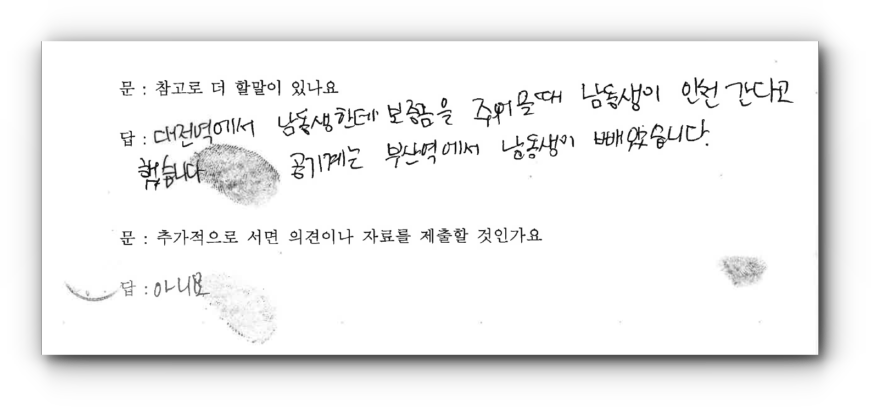 문 : 참고로 더 할말이 있나요
답 : 대전역에서 남동생한테 보증금을 주워올때 남동생이 인천 간다고
했습니다 공기계는 부산역에서 남동생이 빼앗았습니다.
문 : 추가적으로 서면 의견이나 자료를 제출할 것인가요
답 : 아니요